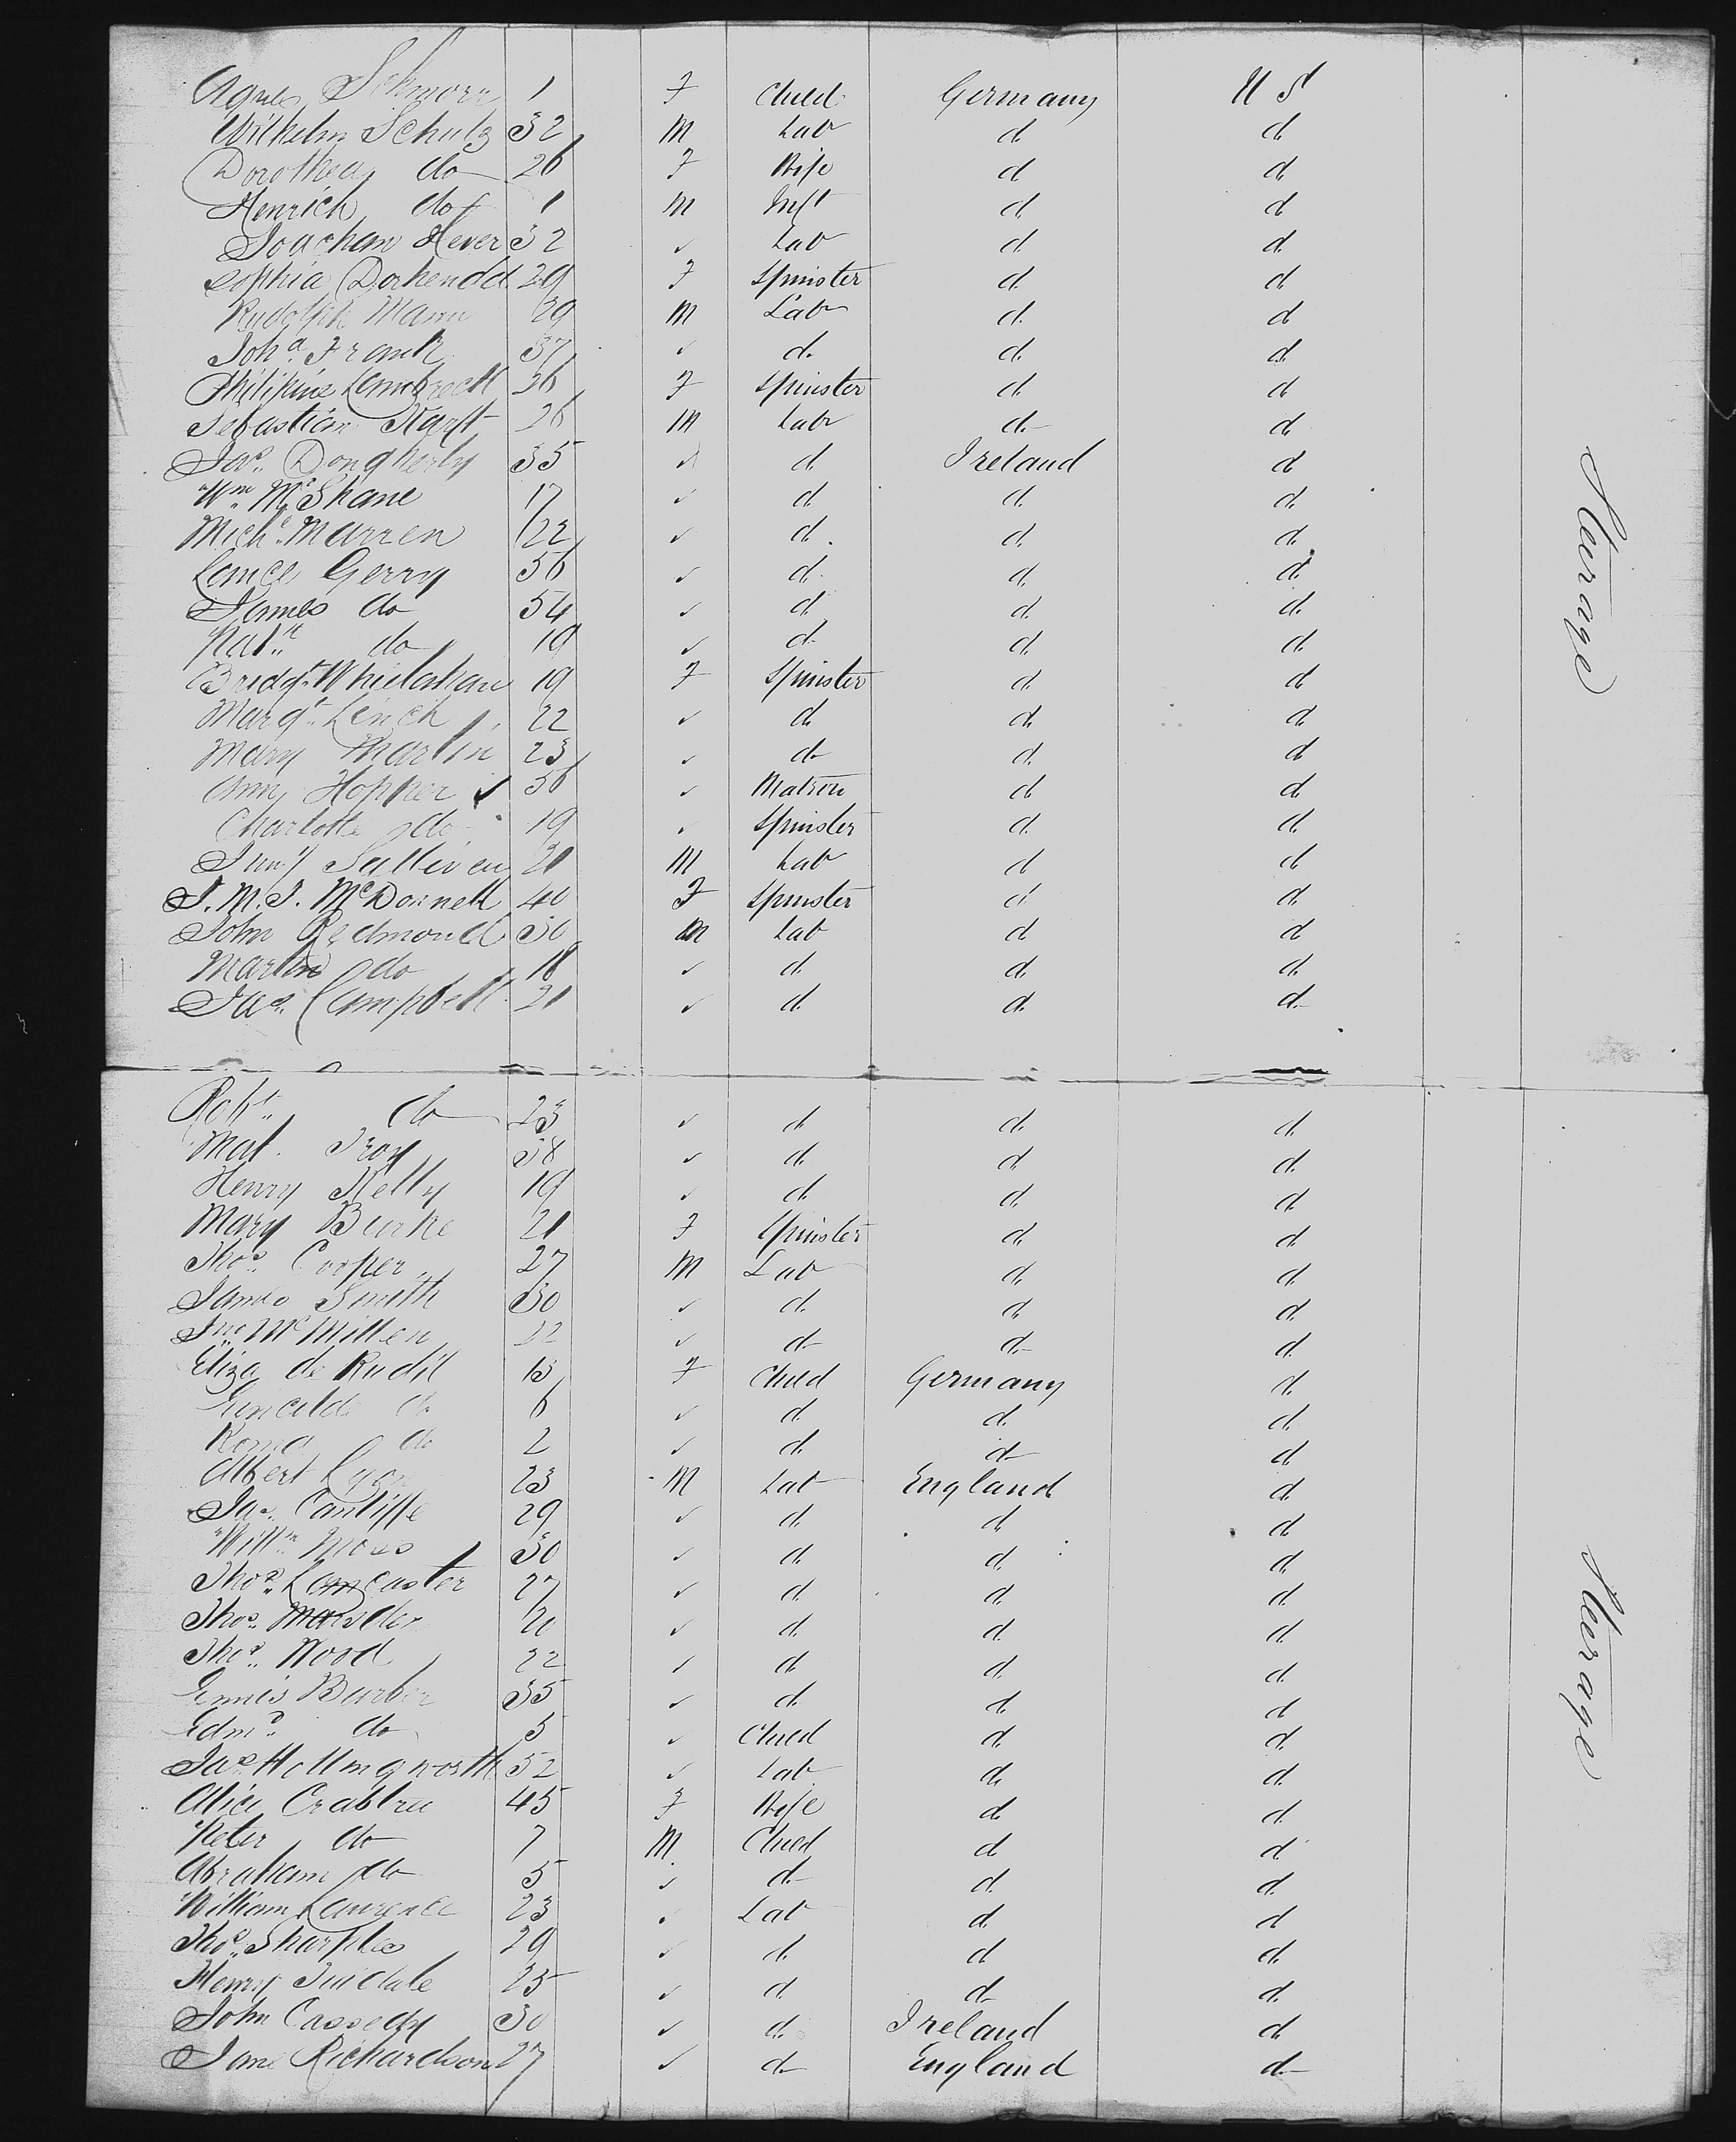 Agnes Schmorr 1 F Child Germany U S
Wilhelm Schulz 32 M Lab d d
Dorothea do 26 F Wife d d
Henrich do 1 M Inft d d
Joacham Hever 32 ✓ Lab d d
Sophia Dorhendd 29 F Spinster d d
Rudolph Mann 29 M Lab d d
Joha Frank 37 ✓ d d d
Philipine Lambrecht 26 F Spinster d d
Sebastian Karst 26 M Lab d d
Jas. Dougherty 35 ✓ d Ireland d
Wm McShane 17 ✓ d d d
Michl Marren 22 ✓ d d d
Gerry 56 ✓ d d d
James do 54 ✓ d d d
Patk do 19 ✓ d d d
Bridgt Whielahan 19 F Spinster d d
Margt Linch 22 ✓ d d d
Mary Martin 23 ✓ do d d
Ann Hopper ✓ 56 ✓ Matron d d
Charlotte do 19 ✓ Spinster d d
Sulliven 21 M Lab d d
J. M. J. McDonnell 40 F Spinster d d
John Redmond 30 M Lab d d
Martin do 18 ✓ d d d
Jas. Campbell 21 ✓ d d d
Steerage
Robt. do 23 ✓ d d d
Mat. Troy 38 ✓ d d d
Henry Kelly 19 ✓ d d d
Mary Burke 21 F Spinster d d
Thos. Cooper 27 M Lab d d
James Smith 30 ✓ d d d
Jno McMillen 22 ✓ d d d
Eliza de Rudil 13 F Child Germany d
do 6 ✓ d d d
Roma do 2 ✓ d d d
Albert Lyon 23 M Lab England d
Jas. Cantiffe 29 ✓ d d d
Willm Moss 30 ✓ d d d
Thos. Lancaster 27 ✓ d d d
Thos. Marsden 20 ✓ d d d
Thos. Wood 22 ✓ d d d
Ennis Barber 35 ✓ d d d
Edmd do 5 ✓ Child d d
Jas Hollingworth 52 ✓ Lab d d
Alice Crabtree 45 F Wife d d
Peter do 7 M Child d d
Abraham do 5 ✓ d d d
William Laurence 23 ✓ Lab d d
Thos. Sharples 29 ✓ d d d
Henry Tuisdale 25 ✓ d d d
John Cassedy 30 ✓ d Ireland d
Jane Richardson 27 ✓ d England d
Steerage